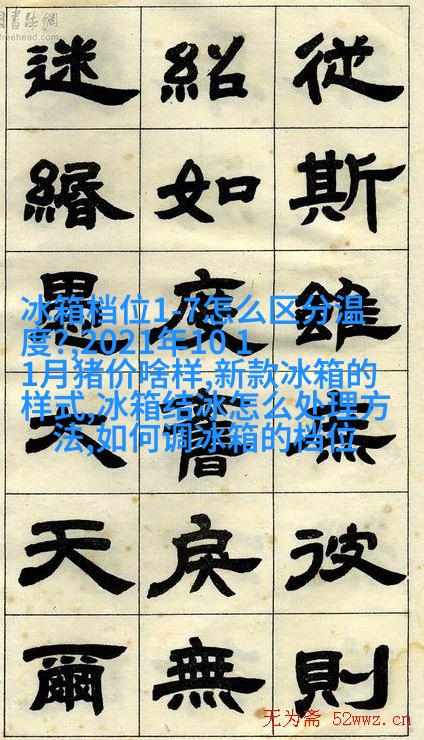 書法網
freehead.com
從斯雖彼則
紹如度戾無
迷緡愚大天爾
冰箱档位1-7怎么区分温
度?,2021年10 1
1月猪价啥样,新款冰箱的
样式,冰箱结冰怎么处理方
法,如何调冰箱的档位
无为斋 52wwz.cn